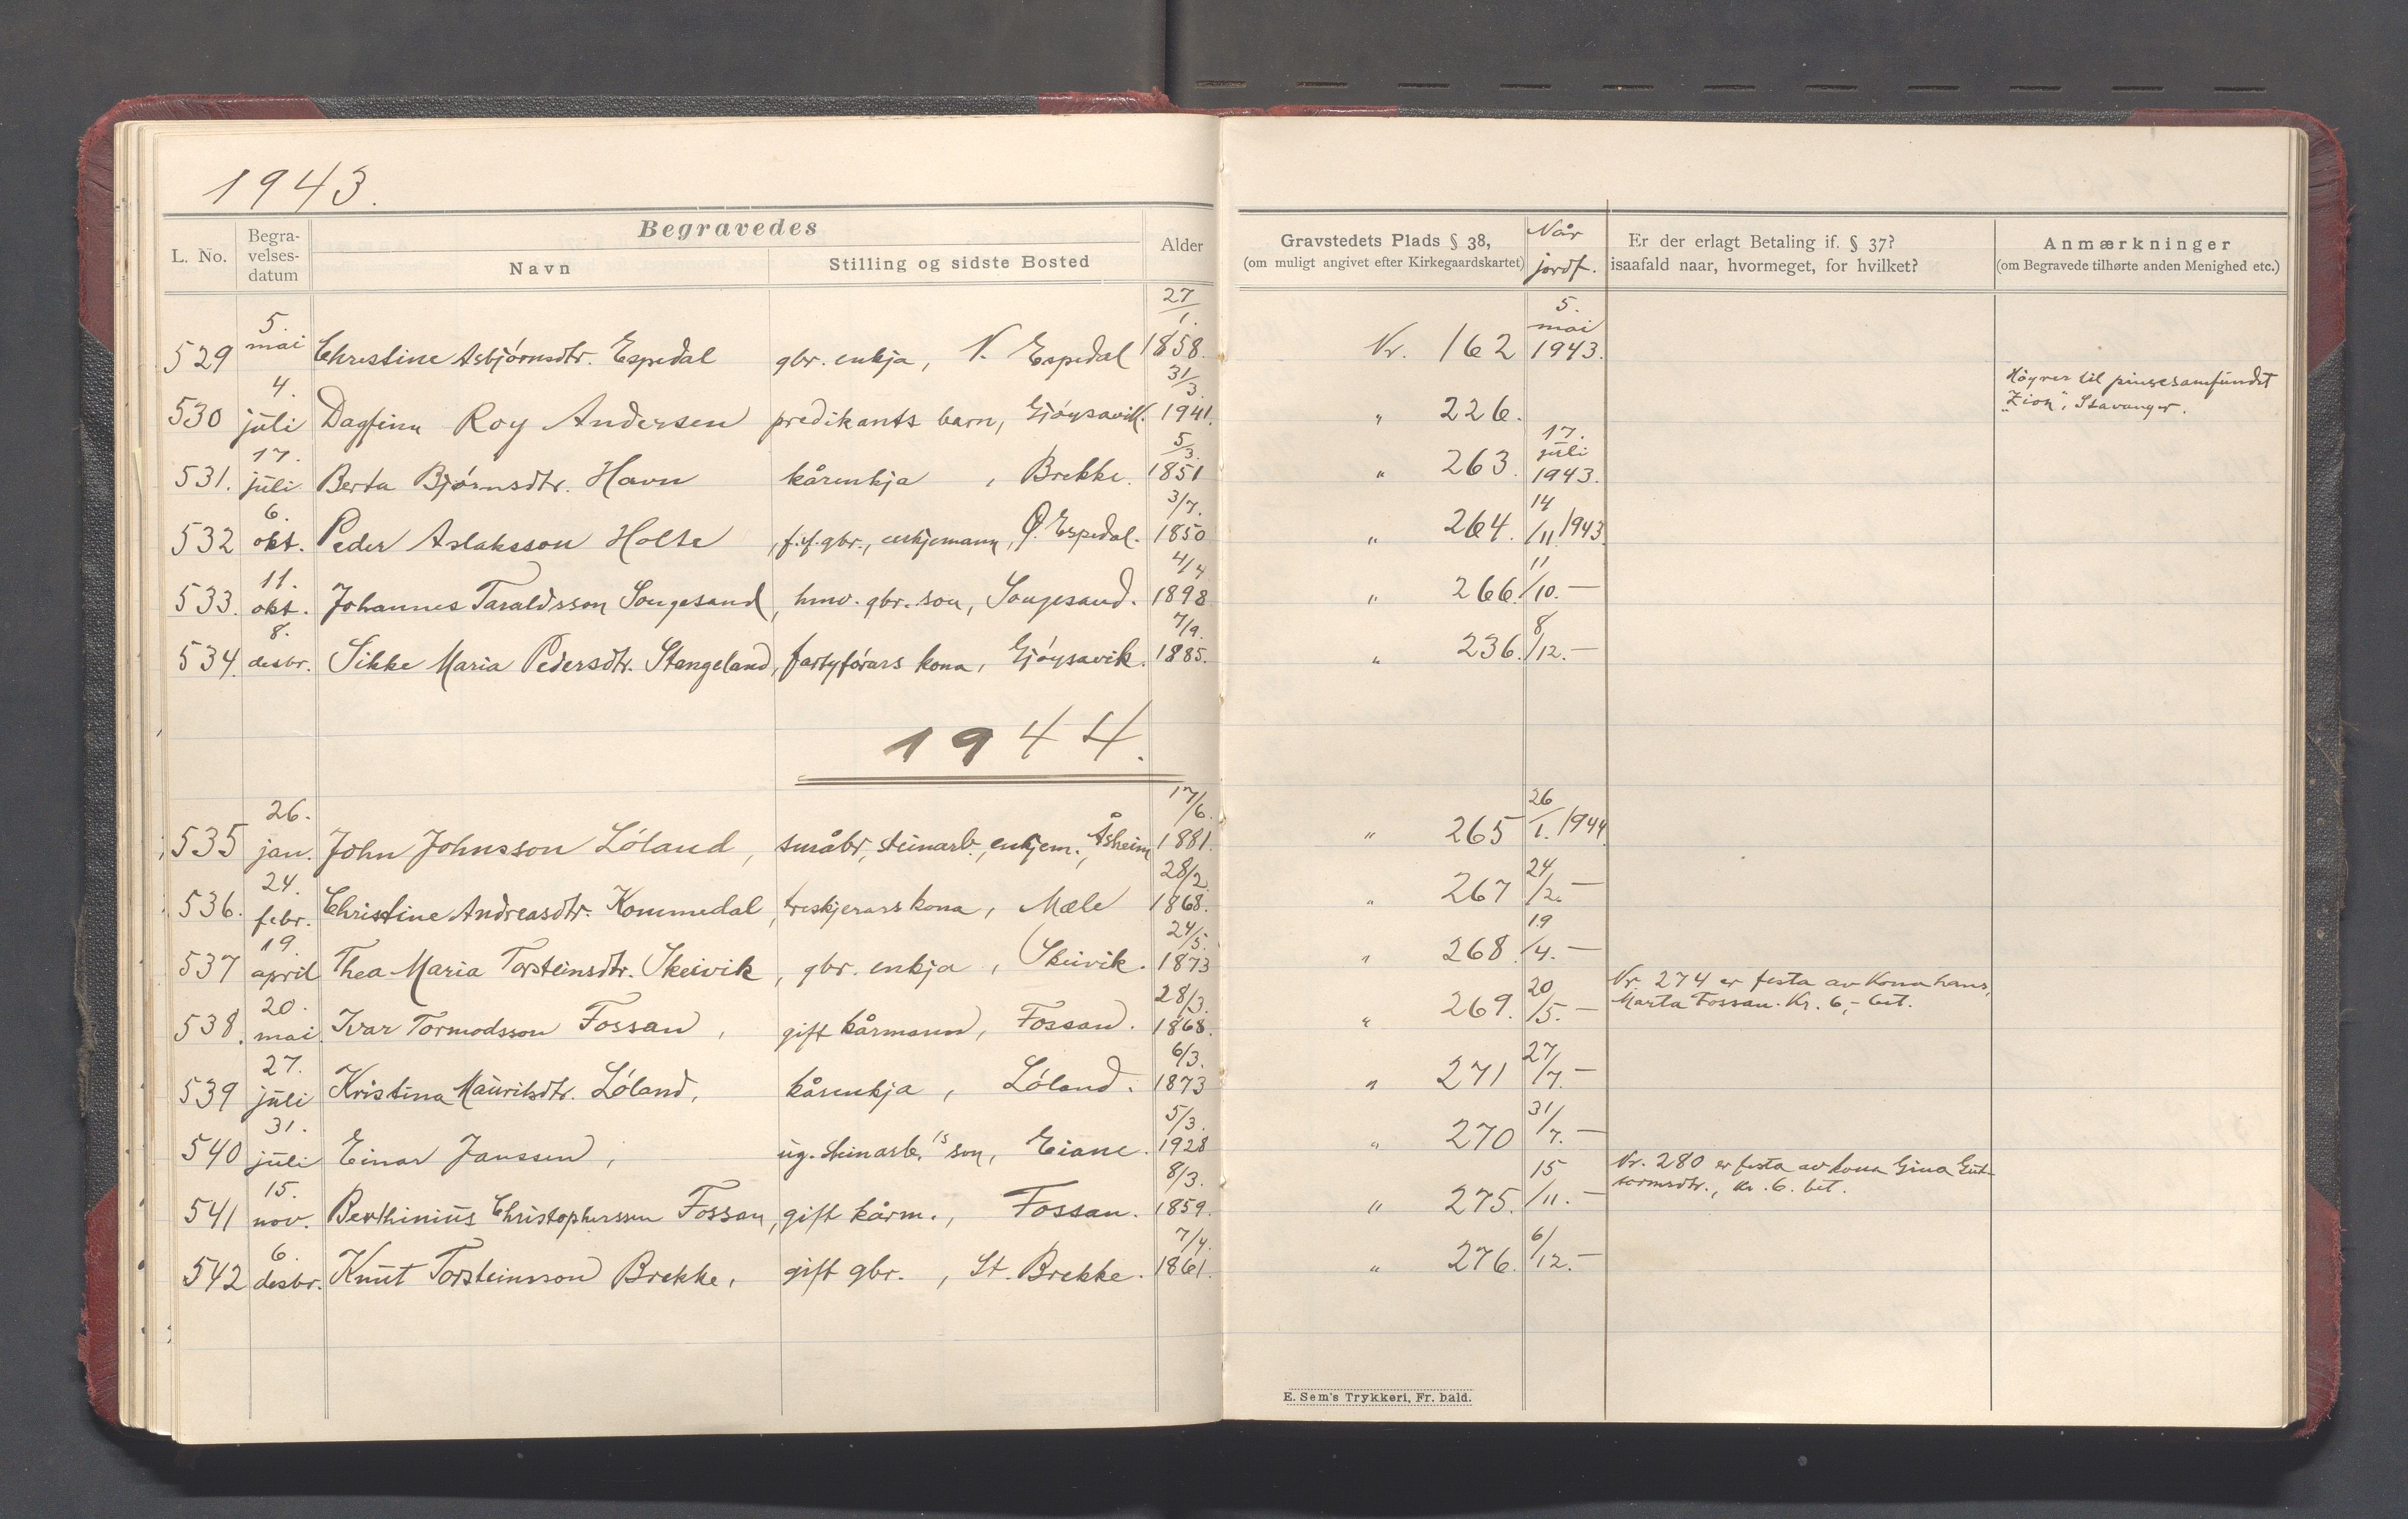 1943.
Begravedes
L. No. Begra-velses-datum Navn Stilling og sidste Bosted Alder Gravstedets Plads § 38, (om muligt angivet efter Kirkegaardskartet) Når jordf. Er der erlagt Betaling if. § 37? isaafald naar, hvormeget, for hvilket? Anmærkninger (om Begravede tilhørte anden Menighed etc.)
529 5. mai Christine Asbjörnsdtr. Espedal gbr. enkja, N. Espedal 27/1. 1858. Nr. 162 5. mai 1943.
530 4. juli Dagfinn Roy Andersen predikants barn, Gjöysavik. 31/3. 1941. " 226. Höyrer til pinsesamfundet "Zion", Stavanger.
531. 17. juli Berta Bjørnsdtr. Havn kårenkja, Brekke. 5/3. 1851 " 263. 17. juli 1943.
532 6. okt. Peder Aslaksson Holte, f.v. gbr., enkjemann, Ø. Espedal. 3/7. 1850 " 264. 14/11 1943.
533. 11. okt. Johannes Taraldsson Songesand, hmv. gbr. son, Songesand. 4/4 1898 " 266. 11/10. —
534. 8. desbr. Sikke Maria Pedersdtr. Stangeland, fartyförars kona, Gjöysavik. 7/9. 1885. " 236. 8/12. —
1944.
535 26. jan. John Johnsson Löland, småbr., steinarb., enkjem., Åsheim 17/6. 1881. " 265 26/1. 1944
536. 24. febr. Christine Andreasdtr. Kommedal, treskjerars kona, Mæle 28/2. 1868. " 267 24/2. —
537 19. april Thea Maria Torsteinsdtr. Skeivik, gbr. enkja, Skeivik. 24/5. 1873 " 268 19/4. —
538. 20. mai Ivar Tormodsson Fossan, gift kårmann, Fossan. 28/3. 1868. " 269. 20/5. — Nr. 274 er festa av kona hans, Marta Fossan. Kr. 6,- bet.
539 27. juli Kristina Mauritsdtr. Löland, kårenkja, Löland. 6/3. 1873 " 271 27/7. —
540 31. juli Einar Janssen, ug. steinarb.'s son, Eiane. 5/3. 1928 " 270 31/7. —
541 15. nov. Berthinius Christophersen Fossan, gift kårm., Fossan. 8/3. 1859. " 275. 15/11. — Nr. 280 er festa av kona Gina Gut-tormsdtr., kr. 6. bet.
542 6. desbr. Knut Torsteinsson Brekke, gift gbr., St. Brekke. 7/4. 1861. " 276. 6/12. —
E. Sem's Trykkeri, Fr. hald.